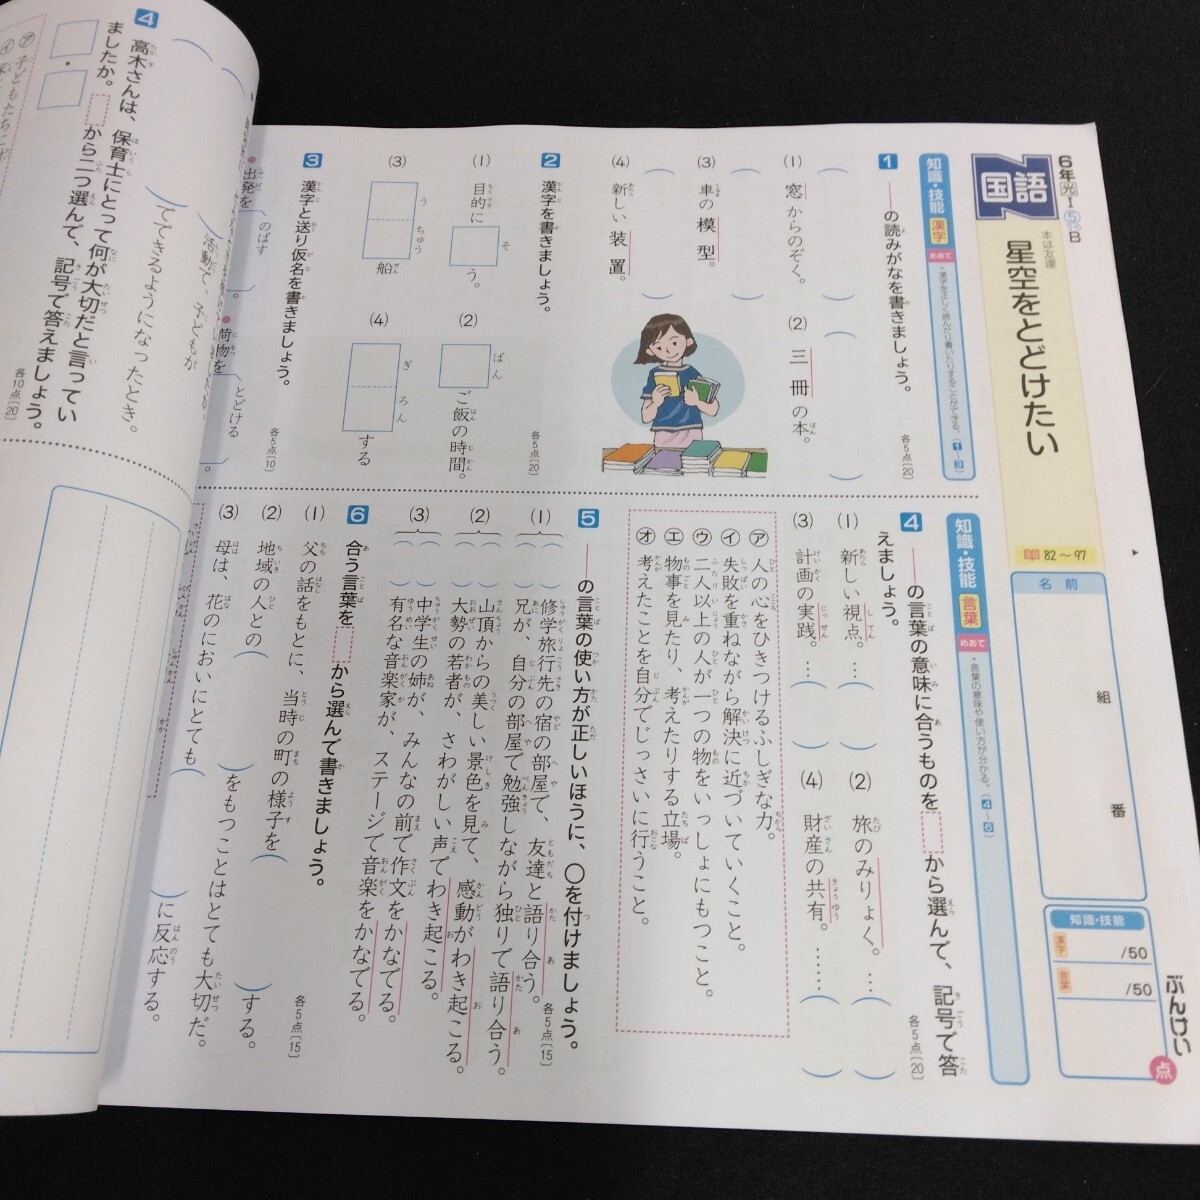 6年 光 Ⅰ ⑤ B
国語
本は友達
星空をとどけたい
82〜97
名前
組
番
知識・技能
漢字 /50
言葉 /50
ぶんけい
点
知識・技能 漢字
めあて
・漢字を正しく読んだり書いたりすることができる。(1〜3)
1 ――の読みがなを書きましょう。
各5点〔20〕
(1) 窓からのぞく。
(2) 三冊の本。
(3) 車の模型。
(4) 新しい装置。
2 漢字を書きましょう。
各5点〔20〕
(1) 目的に□う。
そ
(2) □ご飯の時間。
ばん
(3) □□船
うちゅう
(4) □□する
ぎろん
3 漢字と送り仮名を書きましょう。
各5点〔10〕
・出発を
のばす
・荷物を
とどける
知識・技能 言葉
めあて
・言葉の意味や使い方が分かる。(4〜6)
4 ――の言葉の意味に合うものを□から選んで、記号で答
えましょう。
各5点〔20〕
(1) 新しい視点。…( )
(2) 旅のみりょく。…( )
(3) 計画の実践。…( )
(4) 財産の共有。……( )
ア 人の心をひきつけるふしぎな力。
イ 失敗を重ねながら解決に近づいていくこと。
ウ 二人以上の人が一つの物をいっしょにもつこと。
エ 物事を見たり、考えたりする立場。
オ 考えたことを自分でじっさいに行うこと。
5 ――の言葉の使い方が正しいほうに、○を付けましょう。
各5点〔15〕
(1) ( )修学旅行先の宿の部屋で、友達と語り合う。
( )兄が、自分の部屋で勉強しながら独りで語り合う。
(2) ( )山頂からの美しい景色を見て、感動がわき起こる。
( )大勢の若者が、さわがしい声でわき起こる。
(3) ( )中学生の姉が、みんなの前で作文をかなでる。
( )有名な音楽家が、ステージで音楽をかなでる。
6 合う言葉を□から選んで書きましょう。
各5点〔15〕
(1) 父の話をもとに、当時の町の様子を( )する。
(2) 地域の人との( )をもつことはとても大切だ。
(3) 母は、花のにおいにとても( )に反応する。
4 高木さんは、保育士にとって何が大切だと言ってい
ましたか。□から二つ選んで、記号で答えましょう。
各10点〔20〕
□・□
ア 子どもたち
イ
てできるようになったとき。
活動で、子どもが